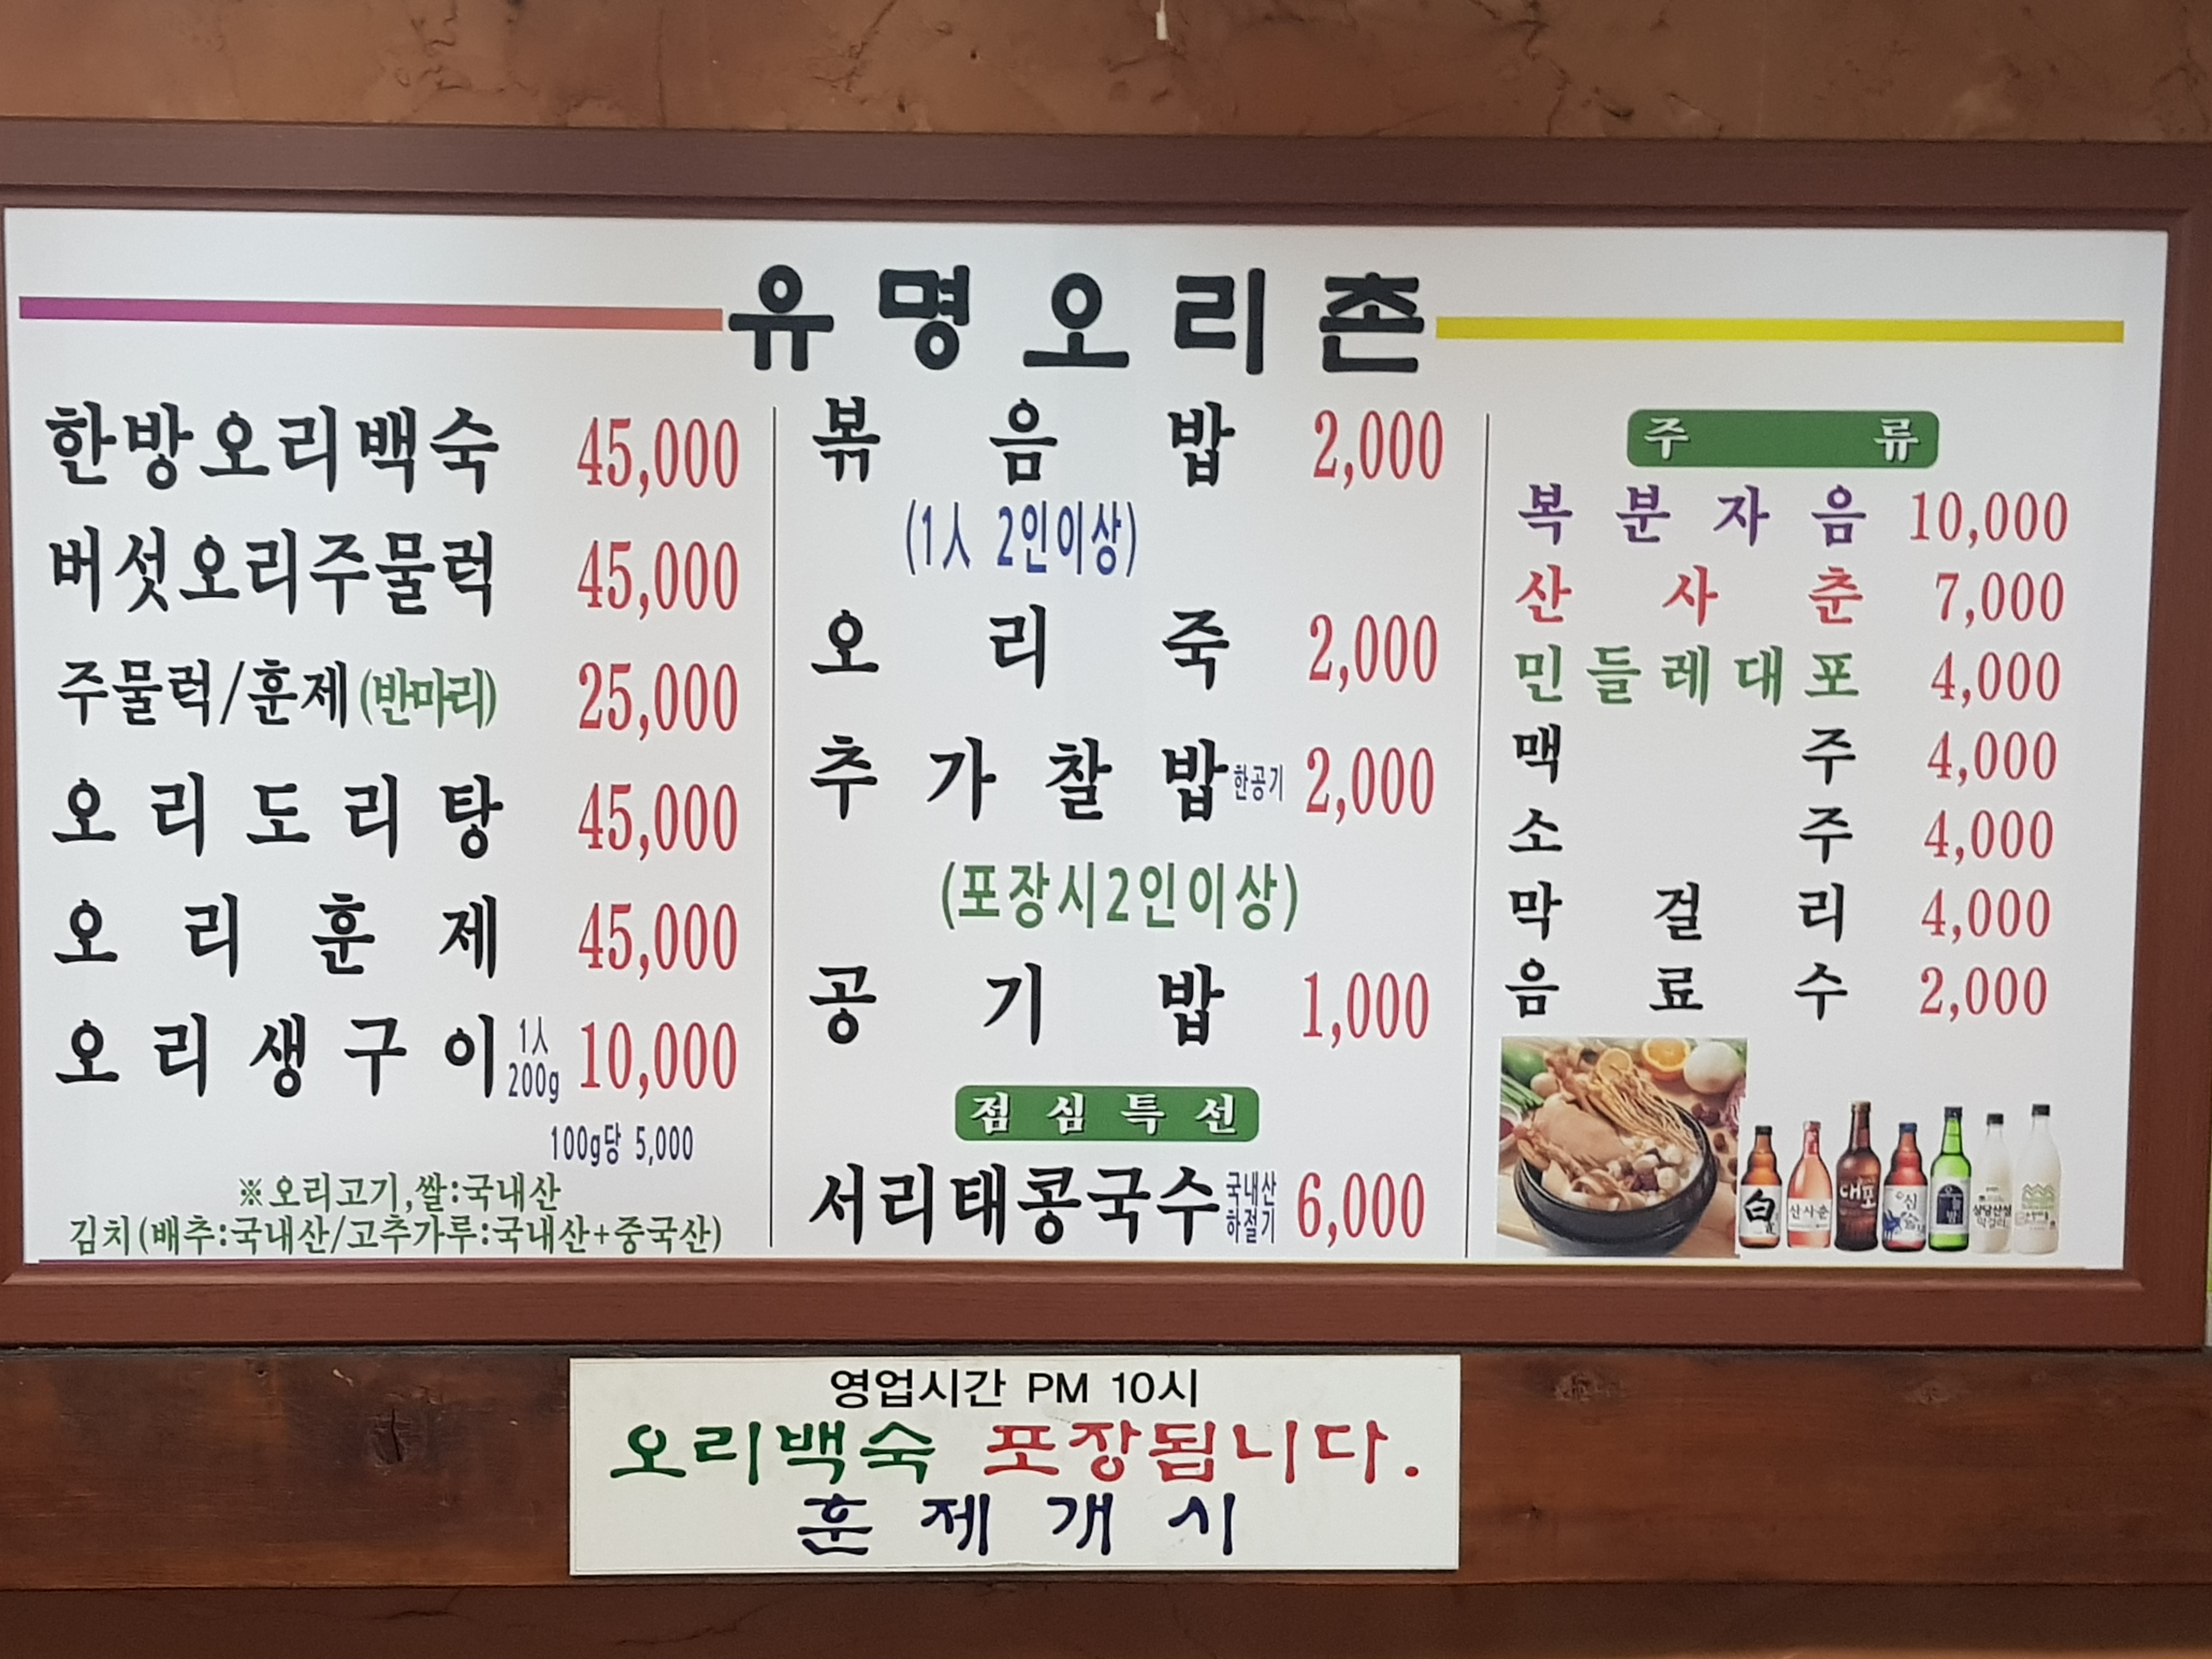 유명오리촌
한방오리백숙 45,000
버섯오리주물럭 45,000
주물럭/훈제(반마리) 25,000
오리도리탕 45,000
오리훈제 45,000
오리생구이 1人 200g 10,000
100g당 5,000
※오리고기,쌀:국내산
김치(배추:국내산/고추가루:국내산+중국산)
볶음밥 2,000
(1人 2인이상)
오리죽 2,000
추가찰밥 한공기 2,000
(포장시2인이상)
공기밥 1,000
점심특선
서리태콩국수 국내산 하절기 6,000
주류
복분자음 10,000
산사춘 7,000
민들레대포 4,000
맥주 4,000
소주 4,000
막걸리 4,000
음료수 2,000
산사춘
대포
영업시간 PM 10시
오리백숙 포장됩니다.
훈제개시